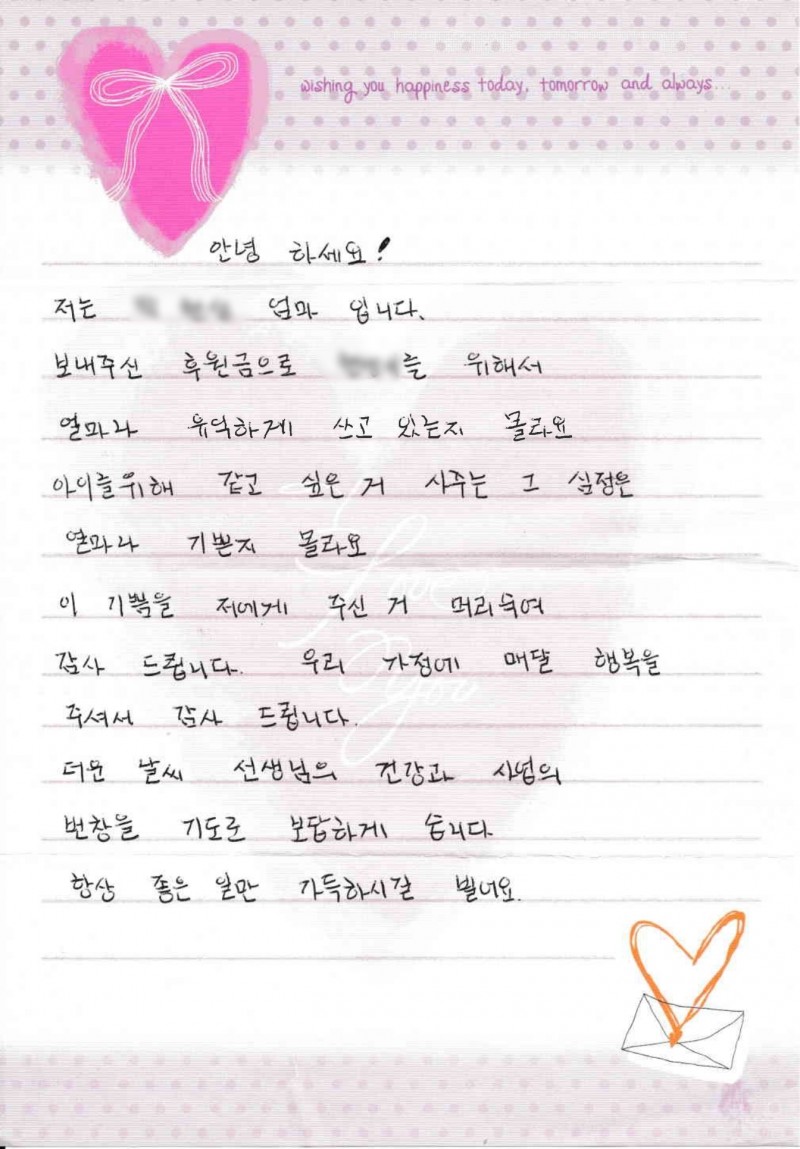 wishing you happiness today, tomorrow and always...
안녕 하세요!
저는 엄마 입니다.
보내주신 후원금으로 를 위해서
얼마나 유익하게 쓰고 있는지 몰라요
아이를위해 갖고 싶은 거 사주는 그 심정은
얼마나 기쁜지 몰라요
이 기쁨을 저에게 주신 거 머리숙여
감사 드립니다. 우리 가정에 매달 행복을
주셔서 감사 드립니다.
더운 날씨 선생님의 건강과 사업의
번창을 기도로 보답하게 습니다.
항상 좋은 일만 가득하시길 빌어요.
Love
You